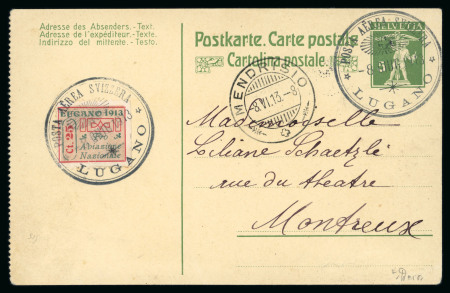 Adresse des Absenders. - Text.
Adresse de l'expéditeur. - Texte.
Indirizzo del mittente. - Testo.
Postkarte. Carte postale.
Cartolina postale.
HELVETIA
5
POSTA AEREA SVIZZERA
LUGANO
MENDRISIO
8.VI.13.-8
POSTA AEREA SVIZZERA
LUGANO
LUGANO 1913
Ct. 25
Aviazione
Nazionale
Mademoiselle
Liliane Schaetzlé
rue du theatre
Montreux